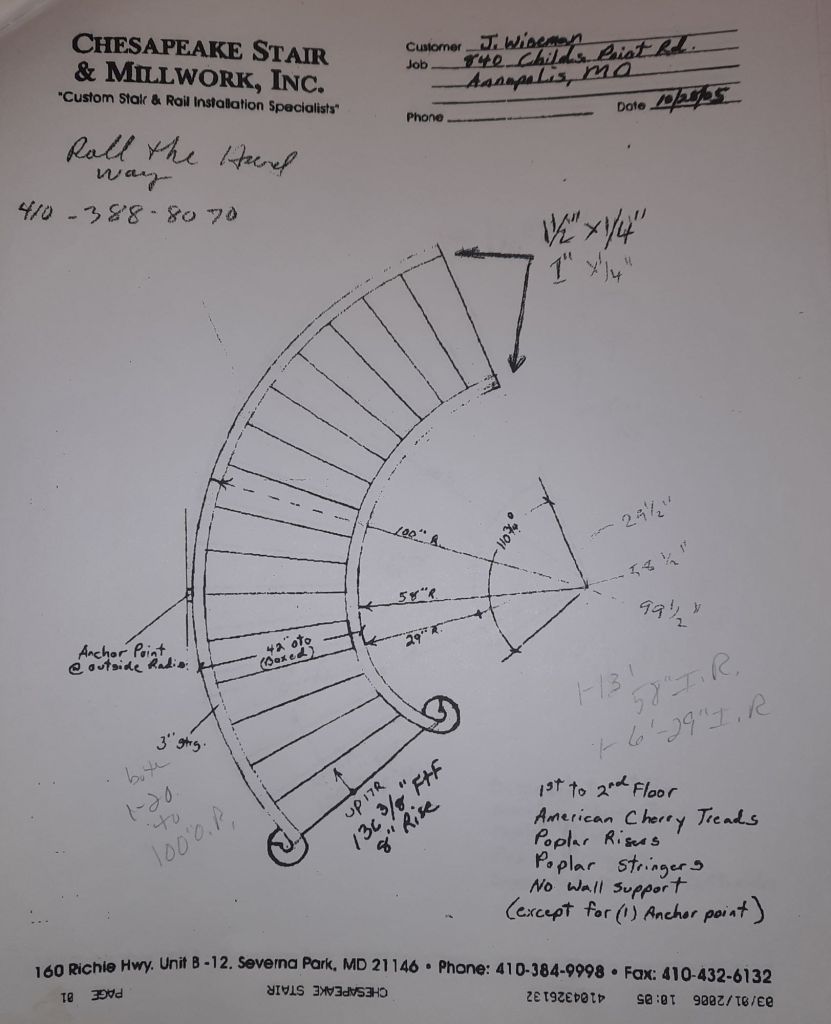 CHESAPEAKE STAIR
& MILLWORK, INC.
"Custom Stair & Rail Installation Specialists"
Customer J. Wiseman
Job 840 Childs Point Rd.
Annapolis, MD
Phone
Date 10/28/05
Roll the Hard
way
410-388-8070
1 1/2" x 1/4"
1" x 1/4"
100" R
110 3/4°
29 1/2"
58 1/2"
99 1/2"
58" R
29" R.
42" oto
(Boxed)
Anchor Point
@ outside Radius
3" Strg.
1-13'
58" I.R.
1-6'-29" I.R
both
1-20
to
100" O.R.
UP 17R
136 3/8" F+F
8" Rise
1st to 2nd Floor
American Cherry Treads
Poplar Risers
Poplar Stringers
No Wall Support
(except for (1) Anchor point)
160 Richie Hwy. Unit B-12, Severna Park, MD 21146 • Phone: 410-384-9998 • Fax: 410-432-6132
03/01/2006 10:05 4104326132 CHESAPEAKE STAIR PAGE 01